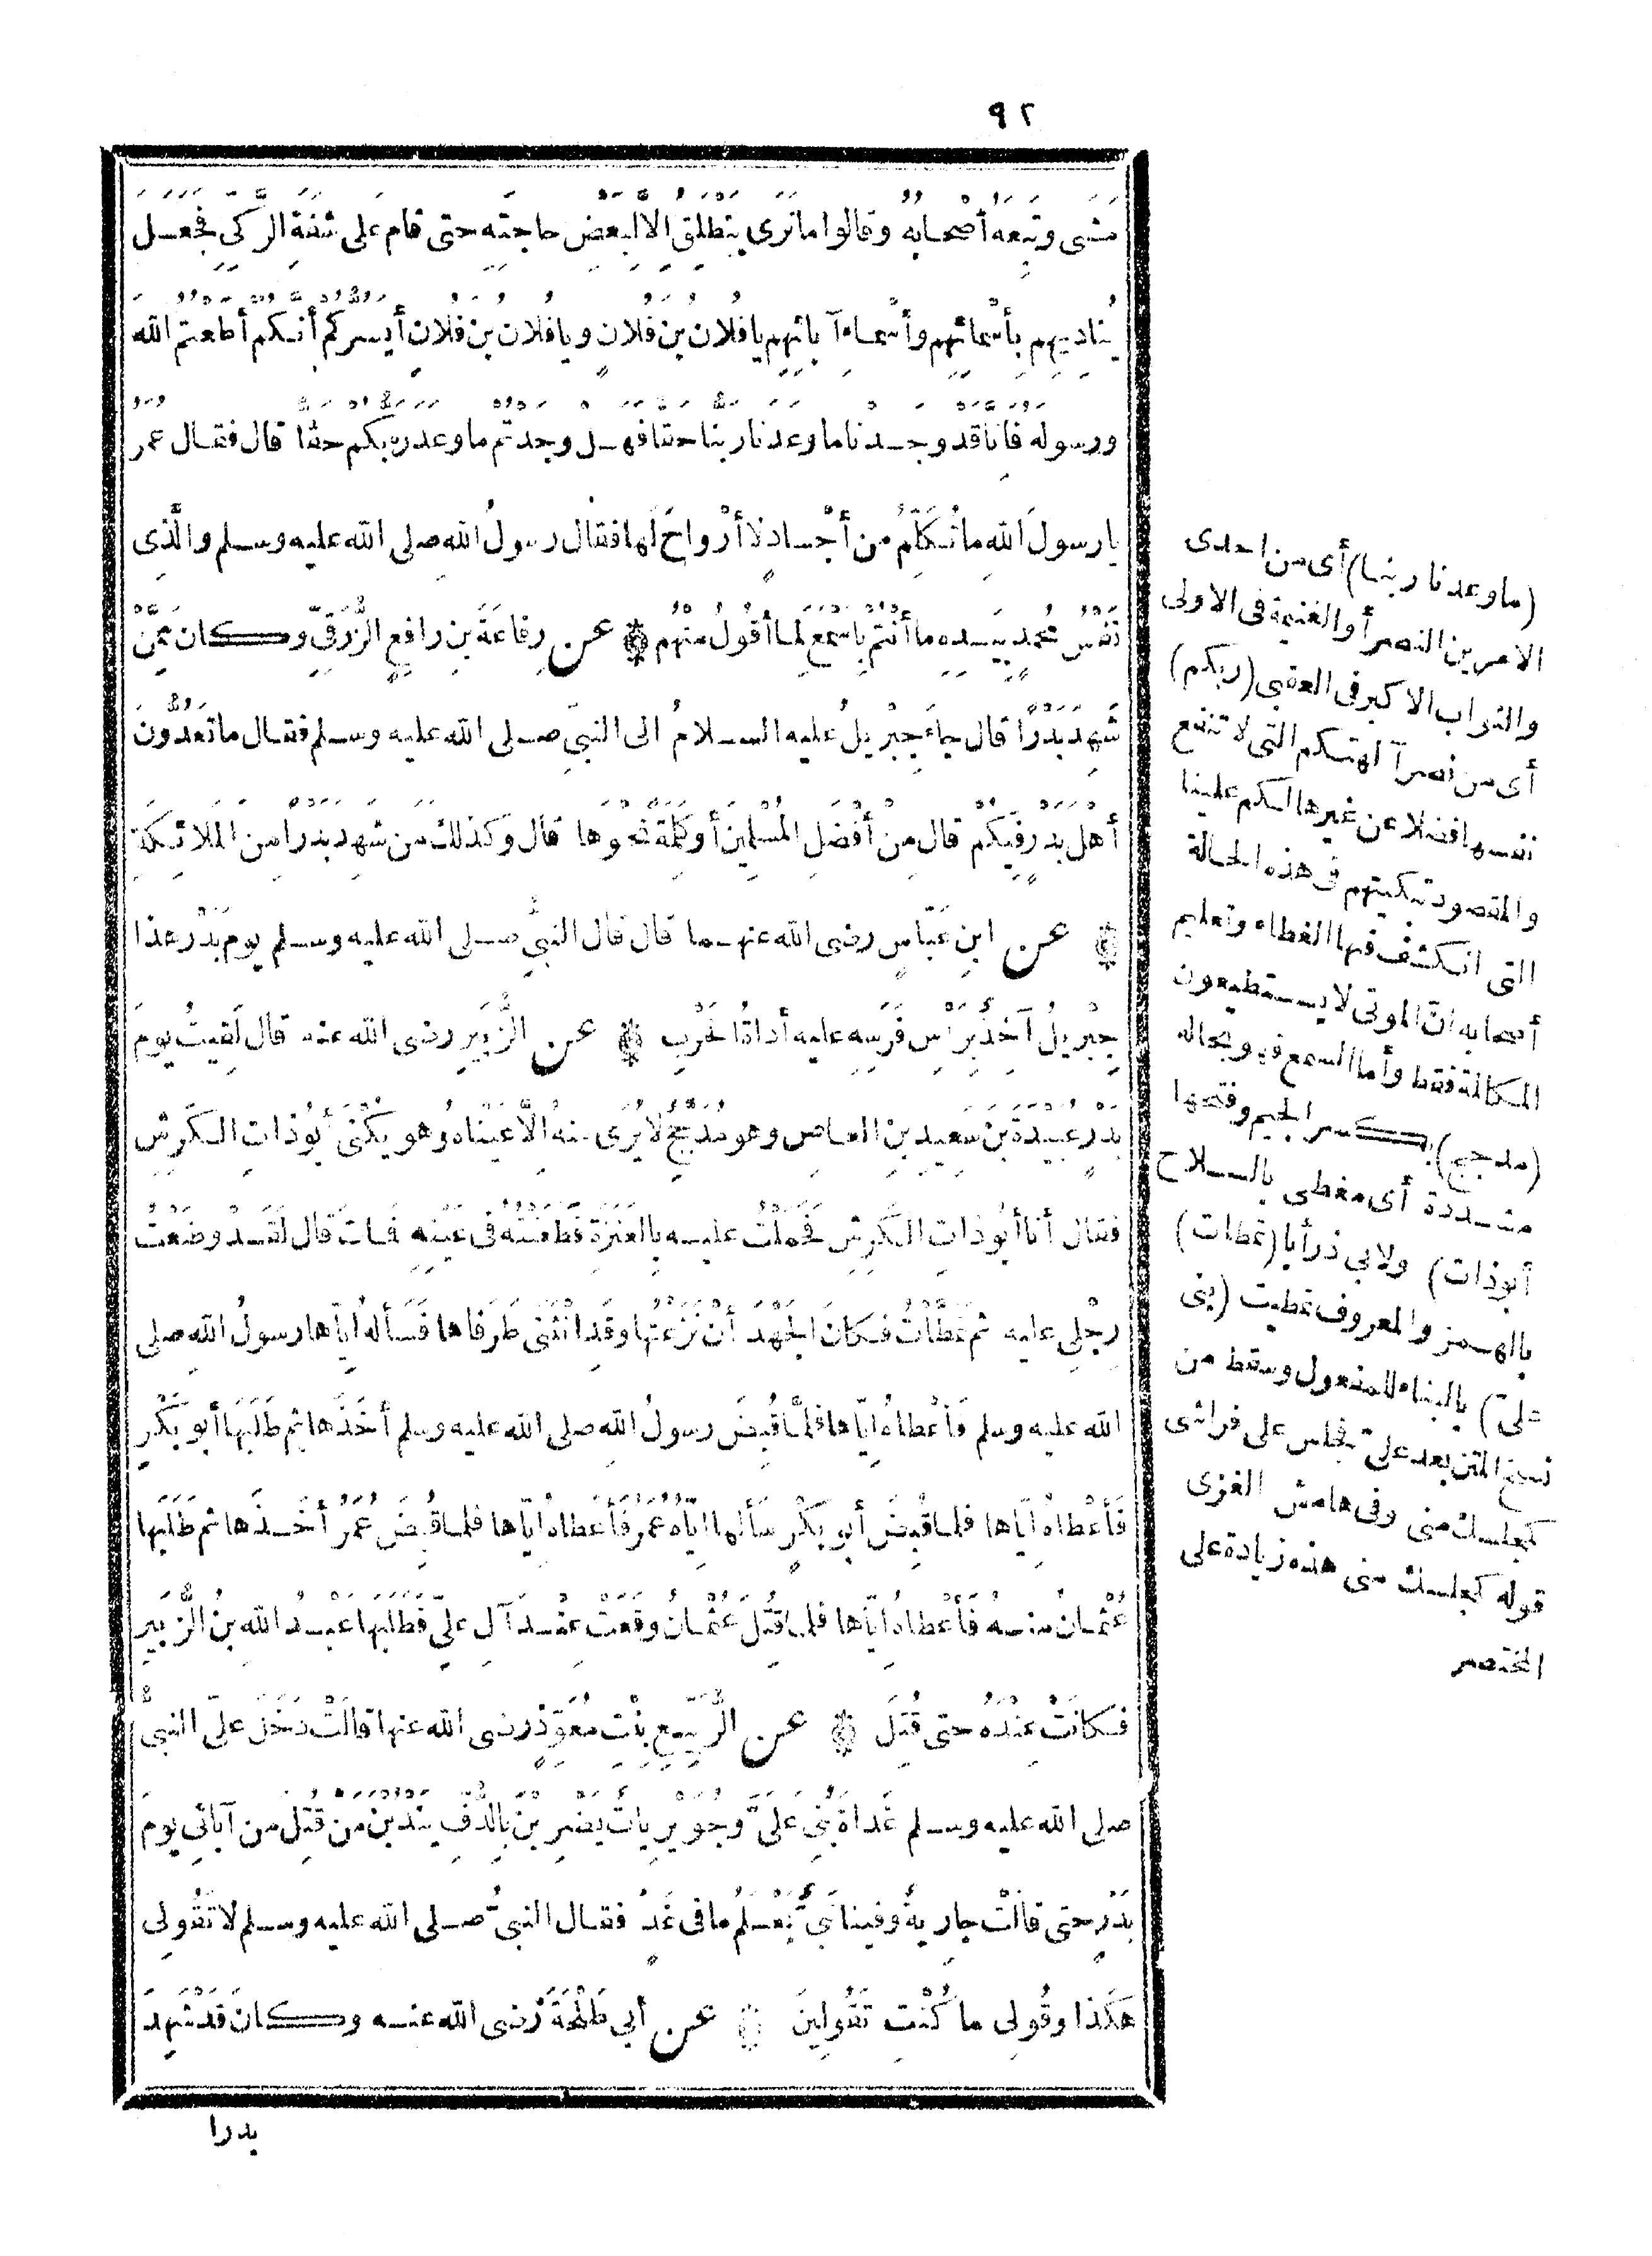 ٩٢
مَشَى وتَبِعَهُ أَصْحابُهُ وقالوا ما نَرَى يَنْطَلِقُ الَّا لِبَعْضِ حاجَتِه حتى قامَ عَلى شَفَةِ الرَّكِيِّ فَجَعَلَ
يُنادِيهِم بِأَسْمائِهِم وأَسْماءِ آبائِهِم يا فُلَانُ بنَ فُلَانٍ ويا فُلَانُ بنَ فُلَانٍ أَيَسُرُّكُم أَنَّكُمْ أَطَعْتُمُ اللهَ
ورسوله فإنَّا قد وجدنا ما وعدنا ربنا حقا فهل وجدتُم ما وعد ربكم حقا قال فقال عمر
يا رسولَ اللهِ ما تُكَلِّمُ من أَجْسادٍ لا أَرْواحَ لَها فقال رسولُ اللهِ صلى الله عليه وسلم والَّذِى
نَفْسُ محمدٍ بيَدِهِ ما أَنْتُم بِأَسْمَعَ لِما أَقُولُ مِنْهُم عن رِفاعَةَ بنِ رافِعٍ الزُّرَقِيِّ وكانَ مِمَّنْ
شَهِدَ بَدْرًا قال جاءَ جِبْرِيلُ عليه السلامُ الى النبيِّ صلى الله عليه وسلم فقال ما تَعُدُّونَ
أَهْلَ بَدْرٍ فِيكُمْ قال مِنْ أَفْضَلِ المُسْلِمِينَ أو كَلِمَةً نَحْوَها قال وكذلك من شهِدَ بَدْرًا مِنَ المَلائِكَةِ
عن ابنِ عَبَّاسٍ رضى الله عنهما قال قال النبيُّ صلى الله عليه وسلم يومَ بَدْرٍ هذا
جِبْرِيلُ آخِذٌ بِرَأْسِ فَرَسِهِ عليه أداةُ الحَرْبِ عن الزُّبَيرِ رضى الله عنه قال لَقِيتُ يومَ
بَدْرٍ عُبَيْدَةَ بنَ سَعِيدِ بنِ العاصِ وهو مُدَجَّجٌ لا يُرَى منه إلَّا عَيْناهُ وهو يُكْنَى أَبُو ذاتِ الكَرِشِ
فقال أنا أبُو ذاتِ الكَرِشِ فَحَمَلْتُ عليه بالعَنَزَةِ فَطَعَنْتُهُ فى عَيْنِهِ فَماتَ قال لَقَدْ وضَعْتُ
رِجْلِى عليه ثم تَمَطَّأْتُ فكانَ الجَهْدَ أَنْ نَزَعْتُها وقَدِ انْثَنَى طَرَفاها فَسَأَلهُ إيَّاها رسولُ الله صلى
الله عليه وسلم فَأَعْطاهُ إيَّاها فلمَّا قُبِضَ رسولُ الله صلى الله عليه وسلم أَخَذَها ثم طَلَبَها أبو بَكْرٍ
فَأَعْطاهُ إيَّاها فلما قُبِضَ أبو بَكْرٍ سَأَلها إيَّاهُ عُمَرُ فَأَعْطاهُ إيَّاها فلما قُبِضَ عُمَرُ أَخَذَها ثم طَلَبَها
عُثْمانُ منهُ فَأَعْطاهُ إيَّاها فلما قُتِلَ عُثْمانُ وقَعَتْ عِنْدَ آلِ عَلِيٍّ فَطَلَبَها عَبْدُ اللهِ بنُ الزُّبَيرِ
فكانَتْ عِنْدَهُ حتى قُتِلَ عن الرُّبَيِّعِ بِنْتِ مُعَوِّذٍ رضى الله عنها قالَتْ دَخَلَ عليَّ النبيُّ
صلى الله عليه وسلم غَداةَ بُنِيَ عَلَيَّ وجُوَيْرِياتٌ يَضْرِبْنَ بالدُّفِّ يَنْدُبْنَ مَنْ قُتِلَ من آبائى يومَ
بَدْرٍ حتى قالَتْ جارِيةٌ وفِينا نَبِيٌّ يَعْلَمُ ما فى غَدٍ فقال النبيُّ صلى الله عليه وسلم لا تَقُولِى
هَكَذا وقُولِى ما كُنْتِ تَقُولِينَ عن أبى طَلْحَةَ رَضى الله عنه وكانَ قَدْ شَهِدَ
بدرا
(ما وعدنا ربنا) أى من احدى
الامرين النصر أو الغنيمة فى الاولى
والثواب الاكبر فى العقبى (ربكم)
أى من نصر آلهتكم التى لا تنفع
نفسها فضلا عن غيرها لكم علينا
والمقصود تبكيتهم فى هذه الحالة
التى انكشف فيها الغطاء وتعليم
أصحابه انّ الموتى لا يستطيعون
المكالمة فقط وأما السمع فهو بحاله
(مدجج) بكسر الجيم وفتحها
مشددة أى مغطى بالسلاح
أبو ذات) ولابى ذر أبا (تمطات)
بالهمز والمعروف تمطيت (بنى
علىّ) بالبناء للمفعول وسقط من
نسخ المتن بعد علىّ فجلس على فراشى
كمجلسك منى وفى هامش الغزى
قوله كمجلسك منى هذه زيادة على
المختصر